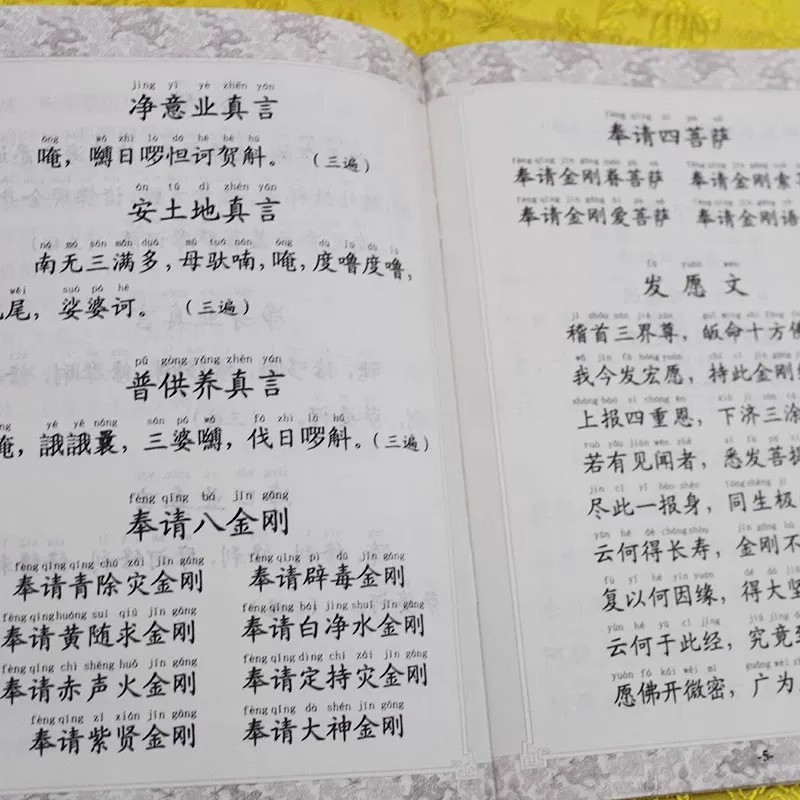 jìng yì yè zhēn yán
净意业真言
ōng wō zhì la dá hē hè hú
唵，嚩日啰怛诃贺斛。（三遍）
ān tǔ dì zhēn yán
安土地真言
nā mó sān mǎn duō mǔ tuó nán ōng dù lǔ dù lǔ
南无三满多，母驮喃，唵，度噜度噜，
wěi suō pó hē
尾，娑婆诃。（三遍）
pǔ gòng yǎng zhēn yán
普供养真言
yé yé nǎng sān pó wō fá zhì la hú
唵，誐誐曩，三婆嚩，伐日啰斛。（三遍）
fèng qǐng bā jīn gāng
奉请八金刚
fèng qǐng qīng chú zāi jīn gāng fèng qǐng pì dú jīn gāng
奉请青除灾金刚 奉请辟毒金刚
fèng qǐng huáng suí qiú jīn gāng fèng qǐng bái jìng shuǐ jīn gāng
奉请黄随求金刚 奉请白净水金刚
fèng qǐng chì shēng huǒ jīn gāng fèng qǐng dìng chí zāi jīn gāng
奉请赤声火金刚 奉请定持灾金刚
fèng qǐng zǐ xián jīn gāng fèng qǐng dà shén jīn gāng
奉请紫贤金刚 奉请大神金刚
fèng qǐng sì pú sà
奉请四菩萨
奉请金刚眷菩萨 奉请金刚索
奉请金刚爱菩萨 奉请金刚语
fā yuàn wén
发愿文
稽首三界尊，皈命十方
我今发宏愿，持此金刚
上报四重恩，下济三涂
若有见闻者，悉发菩提
尽此一报身，同生极
云何得长寿，金刚不
复以何因缘，得大坚
云何于此经，究竟
愿佛开微密，广为
-5-